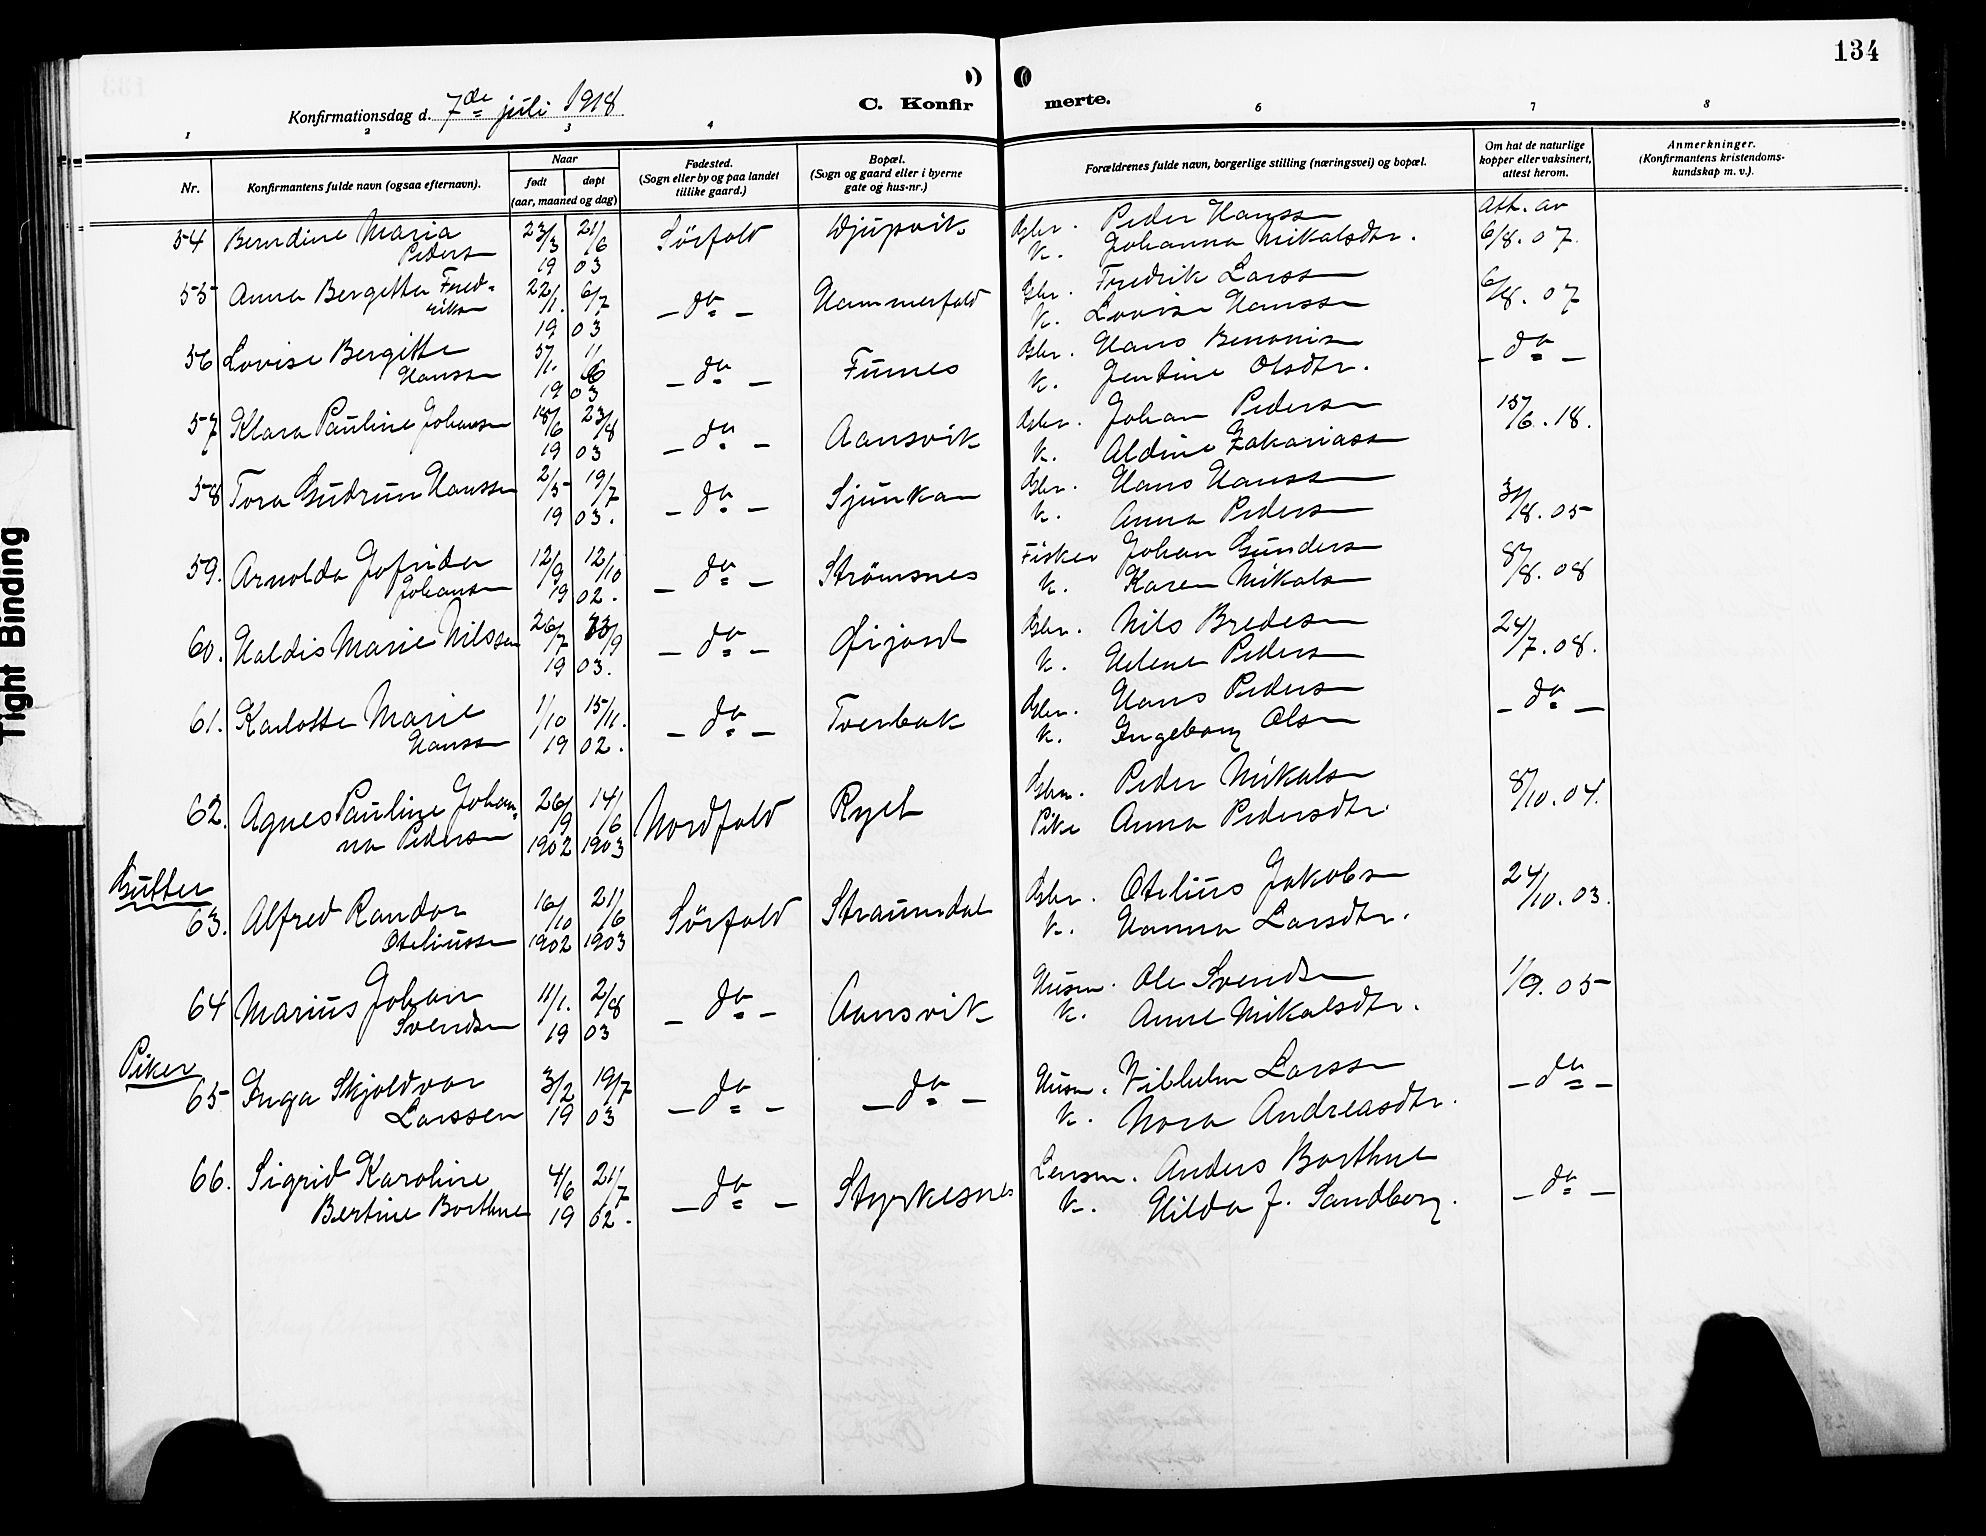 134
Konfirmationsdag d. 7de juli 1918
C. Konfirmerte.
1 2 3 4 6 7 8
Nr. Konfirmantens fulde navn (ogsaa efternavn). Naar født døpt (aar, maaned og dag)
Fødested. (Sogn eller by og paa landet tillike gaard.)
Bopæl. (Sogn og gaard eller i byerne gate og hus-nr.)
Forældrenes fulde navn, borgerlige stilling (næringsvei) og bopæl.
Om hat de naturlige kopper eller vaksinert, attest herom.
Anmerkninger. (Konfirmantens kristendoms-kundskap m. v.).
54 Berndine Maria 23/3 21/6 Sörfold Djupvik Gbr. Peder Hanssen Att. av
Pedersen 19 03 K. Johanna Mikalsdtr. 6/8. 07.
55 Anna Bergitta Fred- 22/1. 6/7 - do - Hammerfald Gbr. Fredrik Larssen 6/8. 07
riksen 19 03 K. Lovise Hanssen
56 Lovise Bergitte 5/1. 1/6 - do - Fürnes Gbr. Hans Benonisen - do -
Hanssen 19 03 K. Jentine Olsdtr.
57 Klara Pauline Johansen 18/6 23/8 - do - Aansvik Gbr. Johan Pedersen 15/6. 18.
19 03 K. Aldine Zakariassen
58 Tora Gudrun Hanssen 2/5 19/7 - do - Sjunkan Gbr. Hans Hanssen 31/8. 05
19 03. K. Anna Pedersen
59. Arnolda Jofrida 12/9 12/10 - do - Strömsnes Fisker Johan Gundersen 8/8. 08
Johansen 19 02. K. Karen Mikalsen
60. Haldis Marie Nilssen 26/7 13/9 - do - Øijord Gbr. Nils Bredesen 24/7. 08.
19 03. K. Helene Pedersen
61. Karlotte Marie 1/10 15/11. - do - Tverbak Gbr. Hans Pedersen - do -
Hanssen 19 02. K. Ingeborg Olsen
62. Agnes Pauline Johan- 26/9 14/6 Nordfold Ryel Gbm. Peder Mikalsen 8/10. 04.
na Pedersen 1902 1903 Pike Anna Pedersdtr.
Gutter
63. Alfred Randor 16/10 21/6 Sörfold Straumdal Gbr. Otelius Jakobsen 24/10. 03.
Oteliussen 1902 1903 K. Hanna Larsdtr.
64 Marius Johan 11/1. 2/8 - do - Aansvik Husm. Ole Svendsen 1/9. 05
Svendsen 19 03 K. Anne Mikalsdtr.
Piker
65 Inga Skjoldvor 3/2 19/7 - do - - do - Husm. Vilhelm Larssen - do -
Larssen 19 03 K. Nora Andreasdtr.
66. Sigrid Karoline 4/6 21/7 - do - Styrkesnes Lensm. Anders Borthne - do -
Bertine Borthne 19 02. K. Hilda J. Sandberg.
Tight Binding